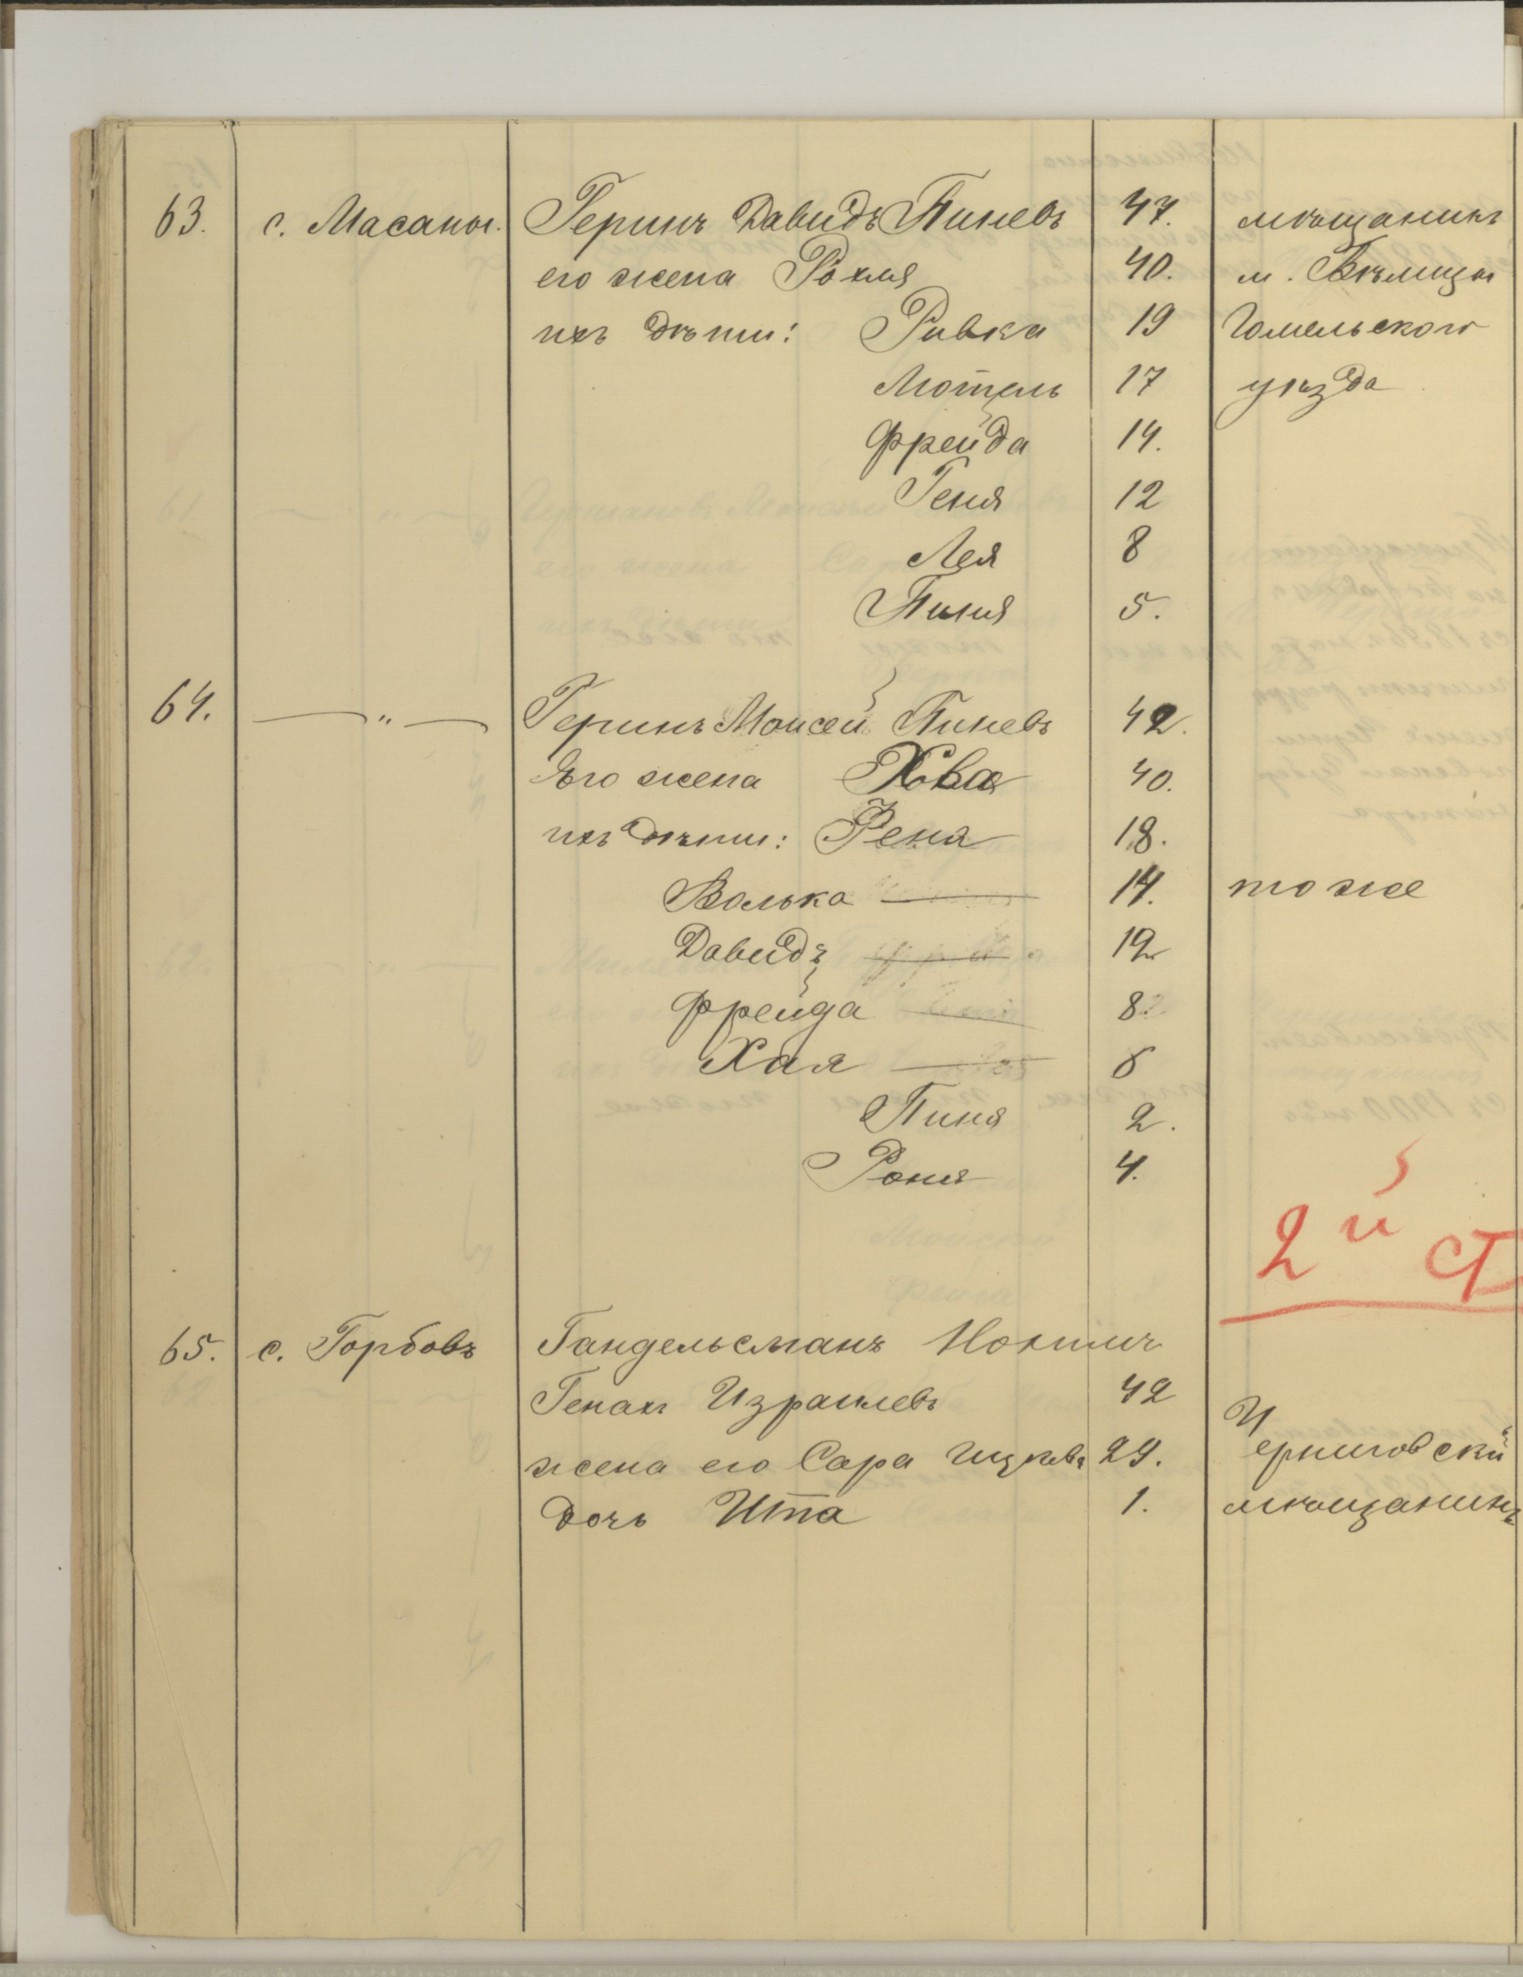 63. с. Масаны. Геринъ Давидъ Пиневъ 47. мѣщанинъ
его жена Рохля 40. м. Вѣлицы
ихъ дѣти: Ривка 19 Гомельского
Мотель 17 уѣзда
Фрейда 14.
Геня 12
Лея 8
Пиня 5.
64. — „ — Геринъ Моисей Пиневъ 42.
Его жена Хова 40.
ихъ дѣти: Реня 18.
Волька — 14. тоже
Давидъ — 12
Фрейда — 8.
Хая — 6
Пиня 2.
Роня 4.
2й ст
65. с. Горбовъ Гандельсманъ
Генахъ Израилевъ 42
жена его Сара Ицкова 24. Черниговскій
дочь Ита 1. мѣщанинъ